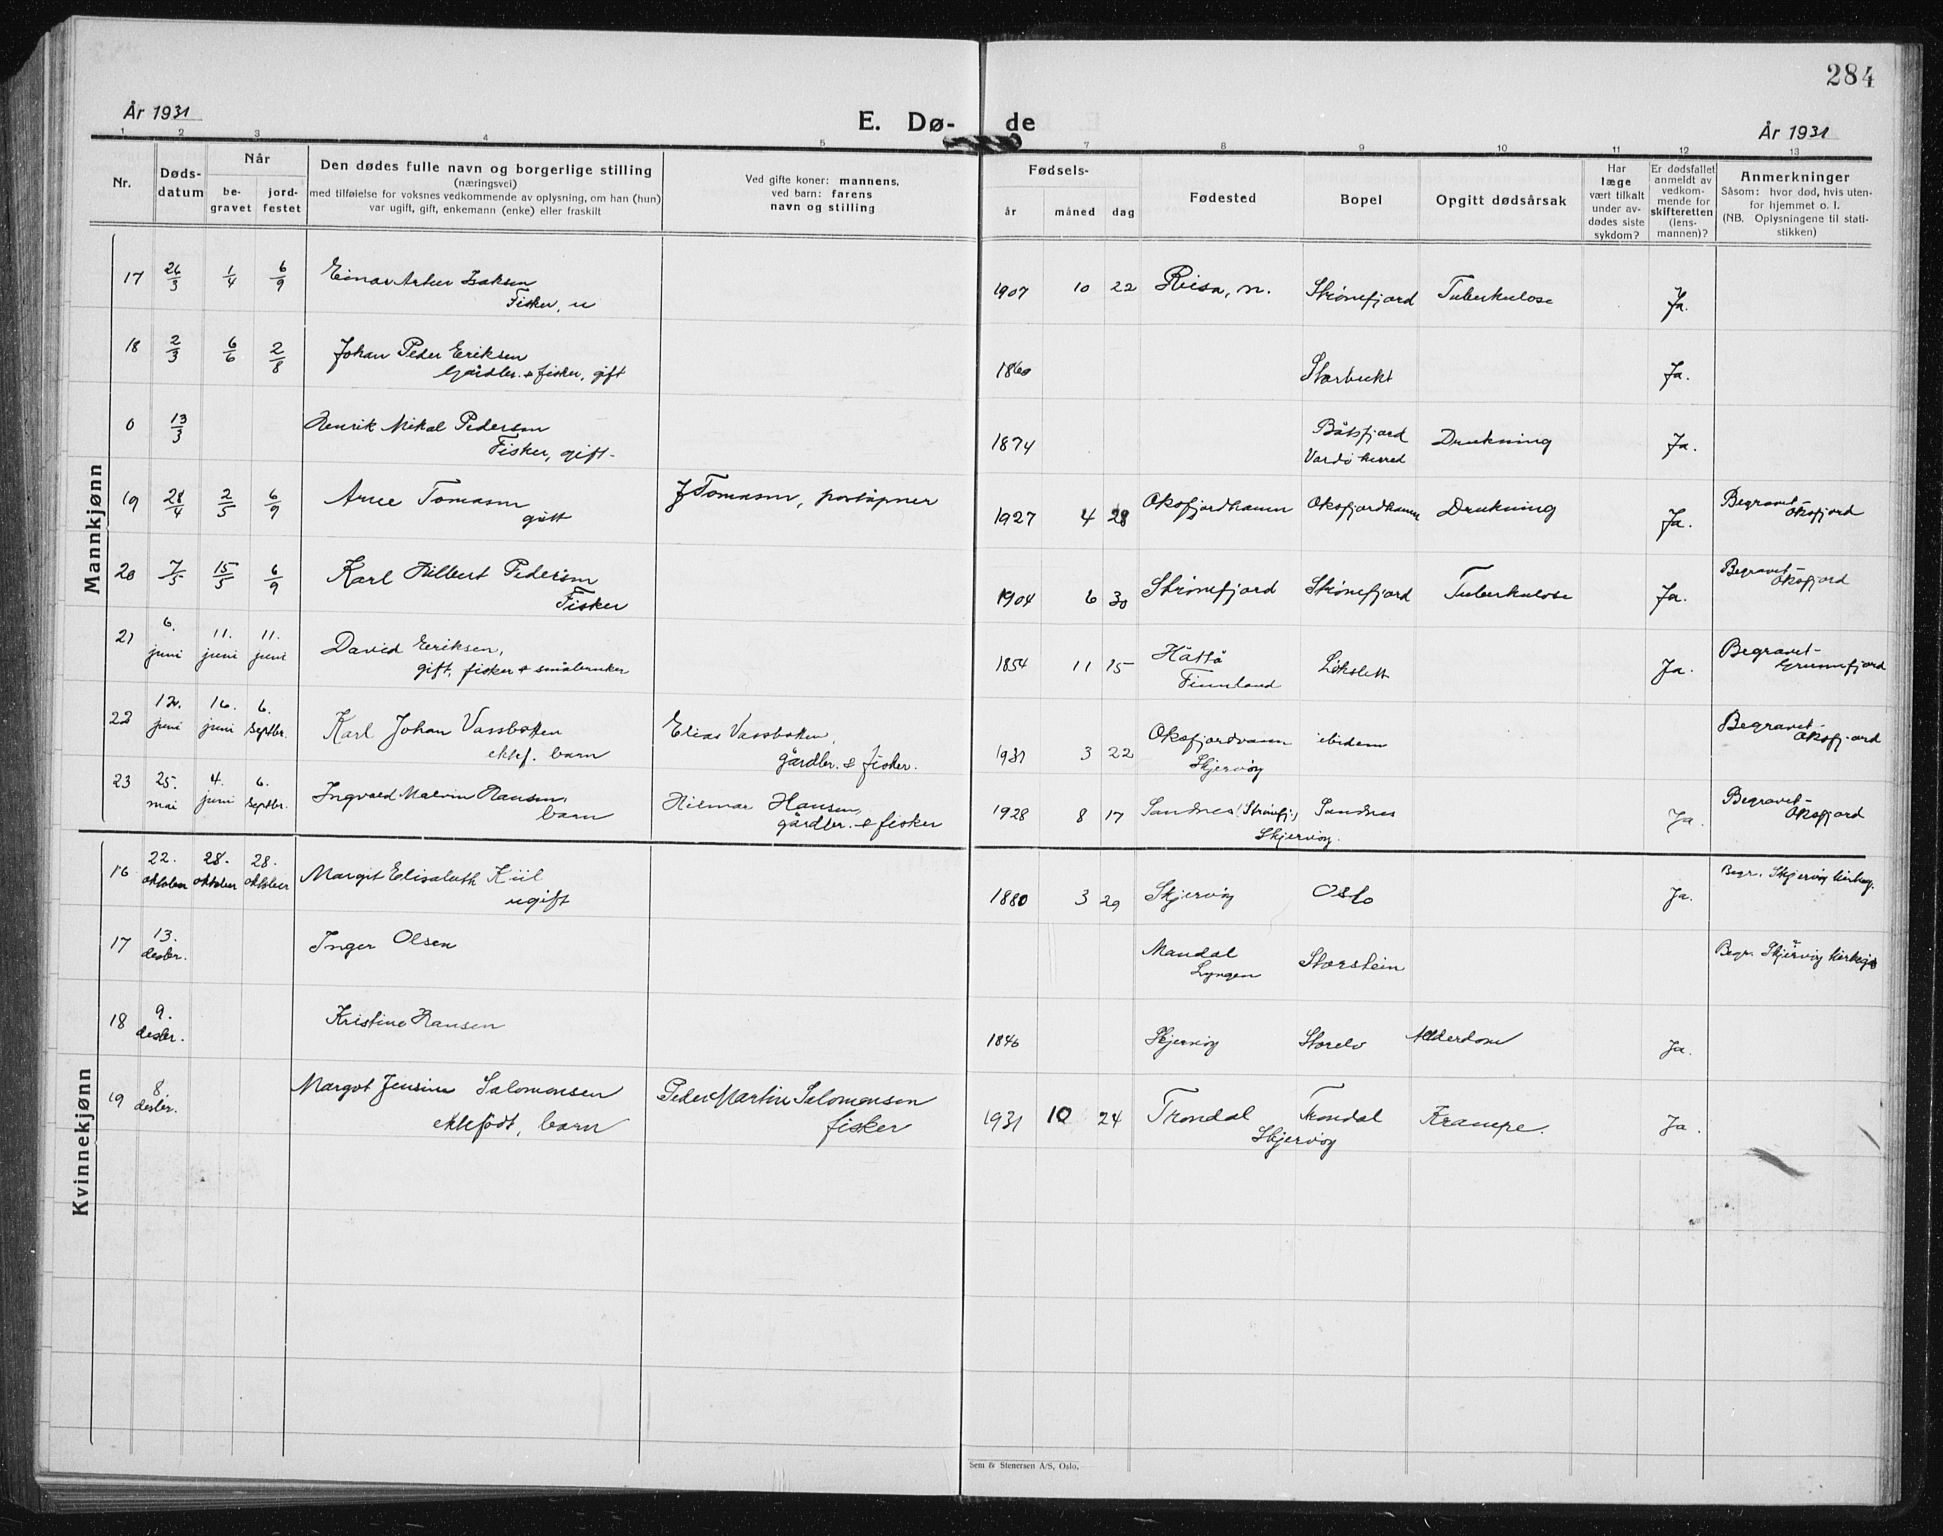 284
År 1931
E. Dø- de
År 1931
1 2 3 4 5 7 8 9 10 11 12 13
Nr.
Døds-
datum
Når
be-
gravet
jord-
festet
Den dødes fulle navn og borgerlige stilling
(næringsvei)
med tilføielse for voksnes vedkommende av oplysning, om han (hun)
var ugift, gift, enkemann (enke) eller fraskilt
Ved gifte koner: mannens,
ved barn: farens
navn og stilling
Fødsels-
år måned dag
Fødested
Bopel
Opgitt dødsårsak
Har
læge
vært tilkalt
under av-
dødes siste
sykdom?
Er dødsfallet
anmeldt av
vedkom-
mende for
skifteretten
(lens-
mannen)?
Anmerkninger
Såsom: hvor død, hvis uten-
for hjemmet o. l.
(NB. Oplysningene til stati-
stikken)
Mannkjønn
17 26/3 1/4 6/9 Einar Artur Isaksen 1907 10 22 Reisa, n. Strømfjord Tuberkulose Ja.
Fisker, u
18 2/3 6/6 2/8 Johan Peder Eriksen 1860 Storbukt Ja.
Gårdbr. & fisker, gift
0 13/3 Henrik Mikal Pedersen 1874 Båtsfjord Drukning Ja.
Fisker, gift. Vardø herred
19 28/4 2/5 6/9 Arne Tomasen J Tomasen, poståpner 1927 4 28 Oksfjordhamn Oksfjordhamn Drukning Ja. Begravet-
gutt Oksfjord
20 7/5 15/5 6/9 Karl Hilbert Pedersen 1904 6 30 Strømfjord Strømfjord Tuberkulose Ja. Begravet-
Fisker Oksfjord
21 6. juni 11. juni 11. juni David Eriksen, 1854 11 15 Hättä Lökslett Ja. Begravet-
gift, fisker & småbruker Finnland Grunnfjord
22 12. juni 16. juni 6. septbr. Karl Johan Vassbotten Elias Vassbotten, 1931 3 22 Oksfjordvann ibidem Begravet-
ektef. barn gårdbr. & fisker. Skjervøy Oksfjord
23 25. mai 4. juni 6. septbr. Ingvald Malvin Hansen, Hilmar Hansen, 1928 8 17 Sandnes (Strømfj.) Sandnes Ja. Begravet-
barn gårdbr. & fisker Skjervøy. Oksfjord
Kvinnekjønn
16 22. oktober 28. oktober 28. oktober Margit Elisabeth Kiil 1880 3 29 Skjervøy Oslo Ja. Begr. Skjervøy kirkeg.
ugift
17 13. desbr. Inger Olsen Mandal Storstein Begr. Skjervøy kirkeg.
Lyngen
18 9. desbr. Kristine Hansen 1846 Skjervøy Storelv Alderdom Ja.
19 8. desbr. Margot Jensine Salomonsen Peder Martin Salomonsen 1931 10 24 Trondal Trondal Krampe. Ja.
ektefødt, barn fisker Skjervøy
Sem & Stenersen A/S, Oslo.